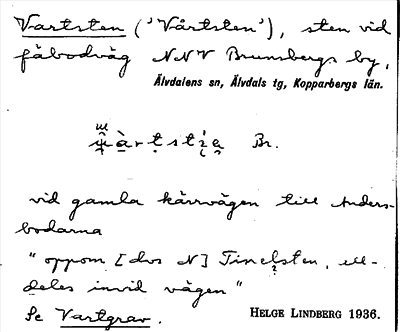 Vartsten ('Vårtsten'), sten vid
fäbodväg NNV Brunnsbergs by,
Älvdalens sn, Älvdals tg, Kopparbergs län.
Br.
vid gamla kärrvägen till Anders-
bodarna
"oppom [dvs N] Tinelsten, all-
deles invid vägen"
Se Vartgrav.
HELGE LINDBERG 1936.